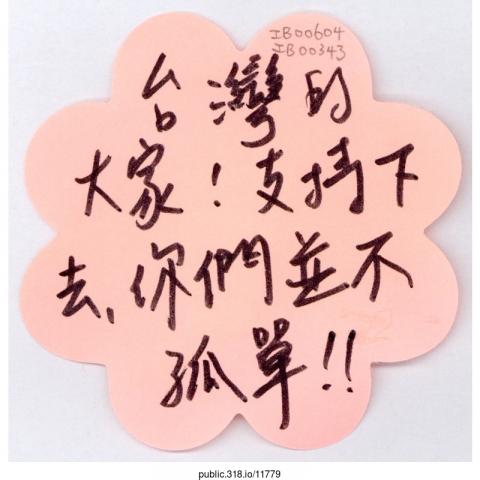 IB00604
IB00343
台灣的
大家！支持下
去、你們並不
孤單!!
public.318.io/11779